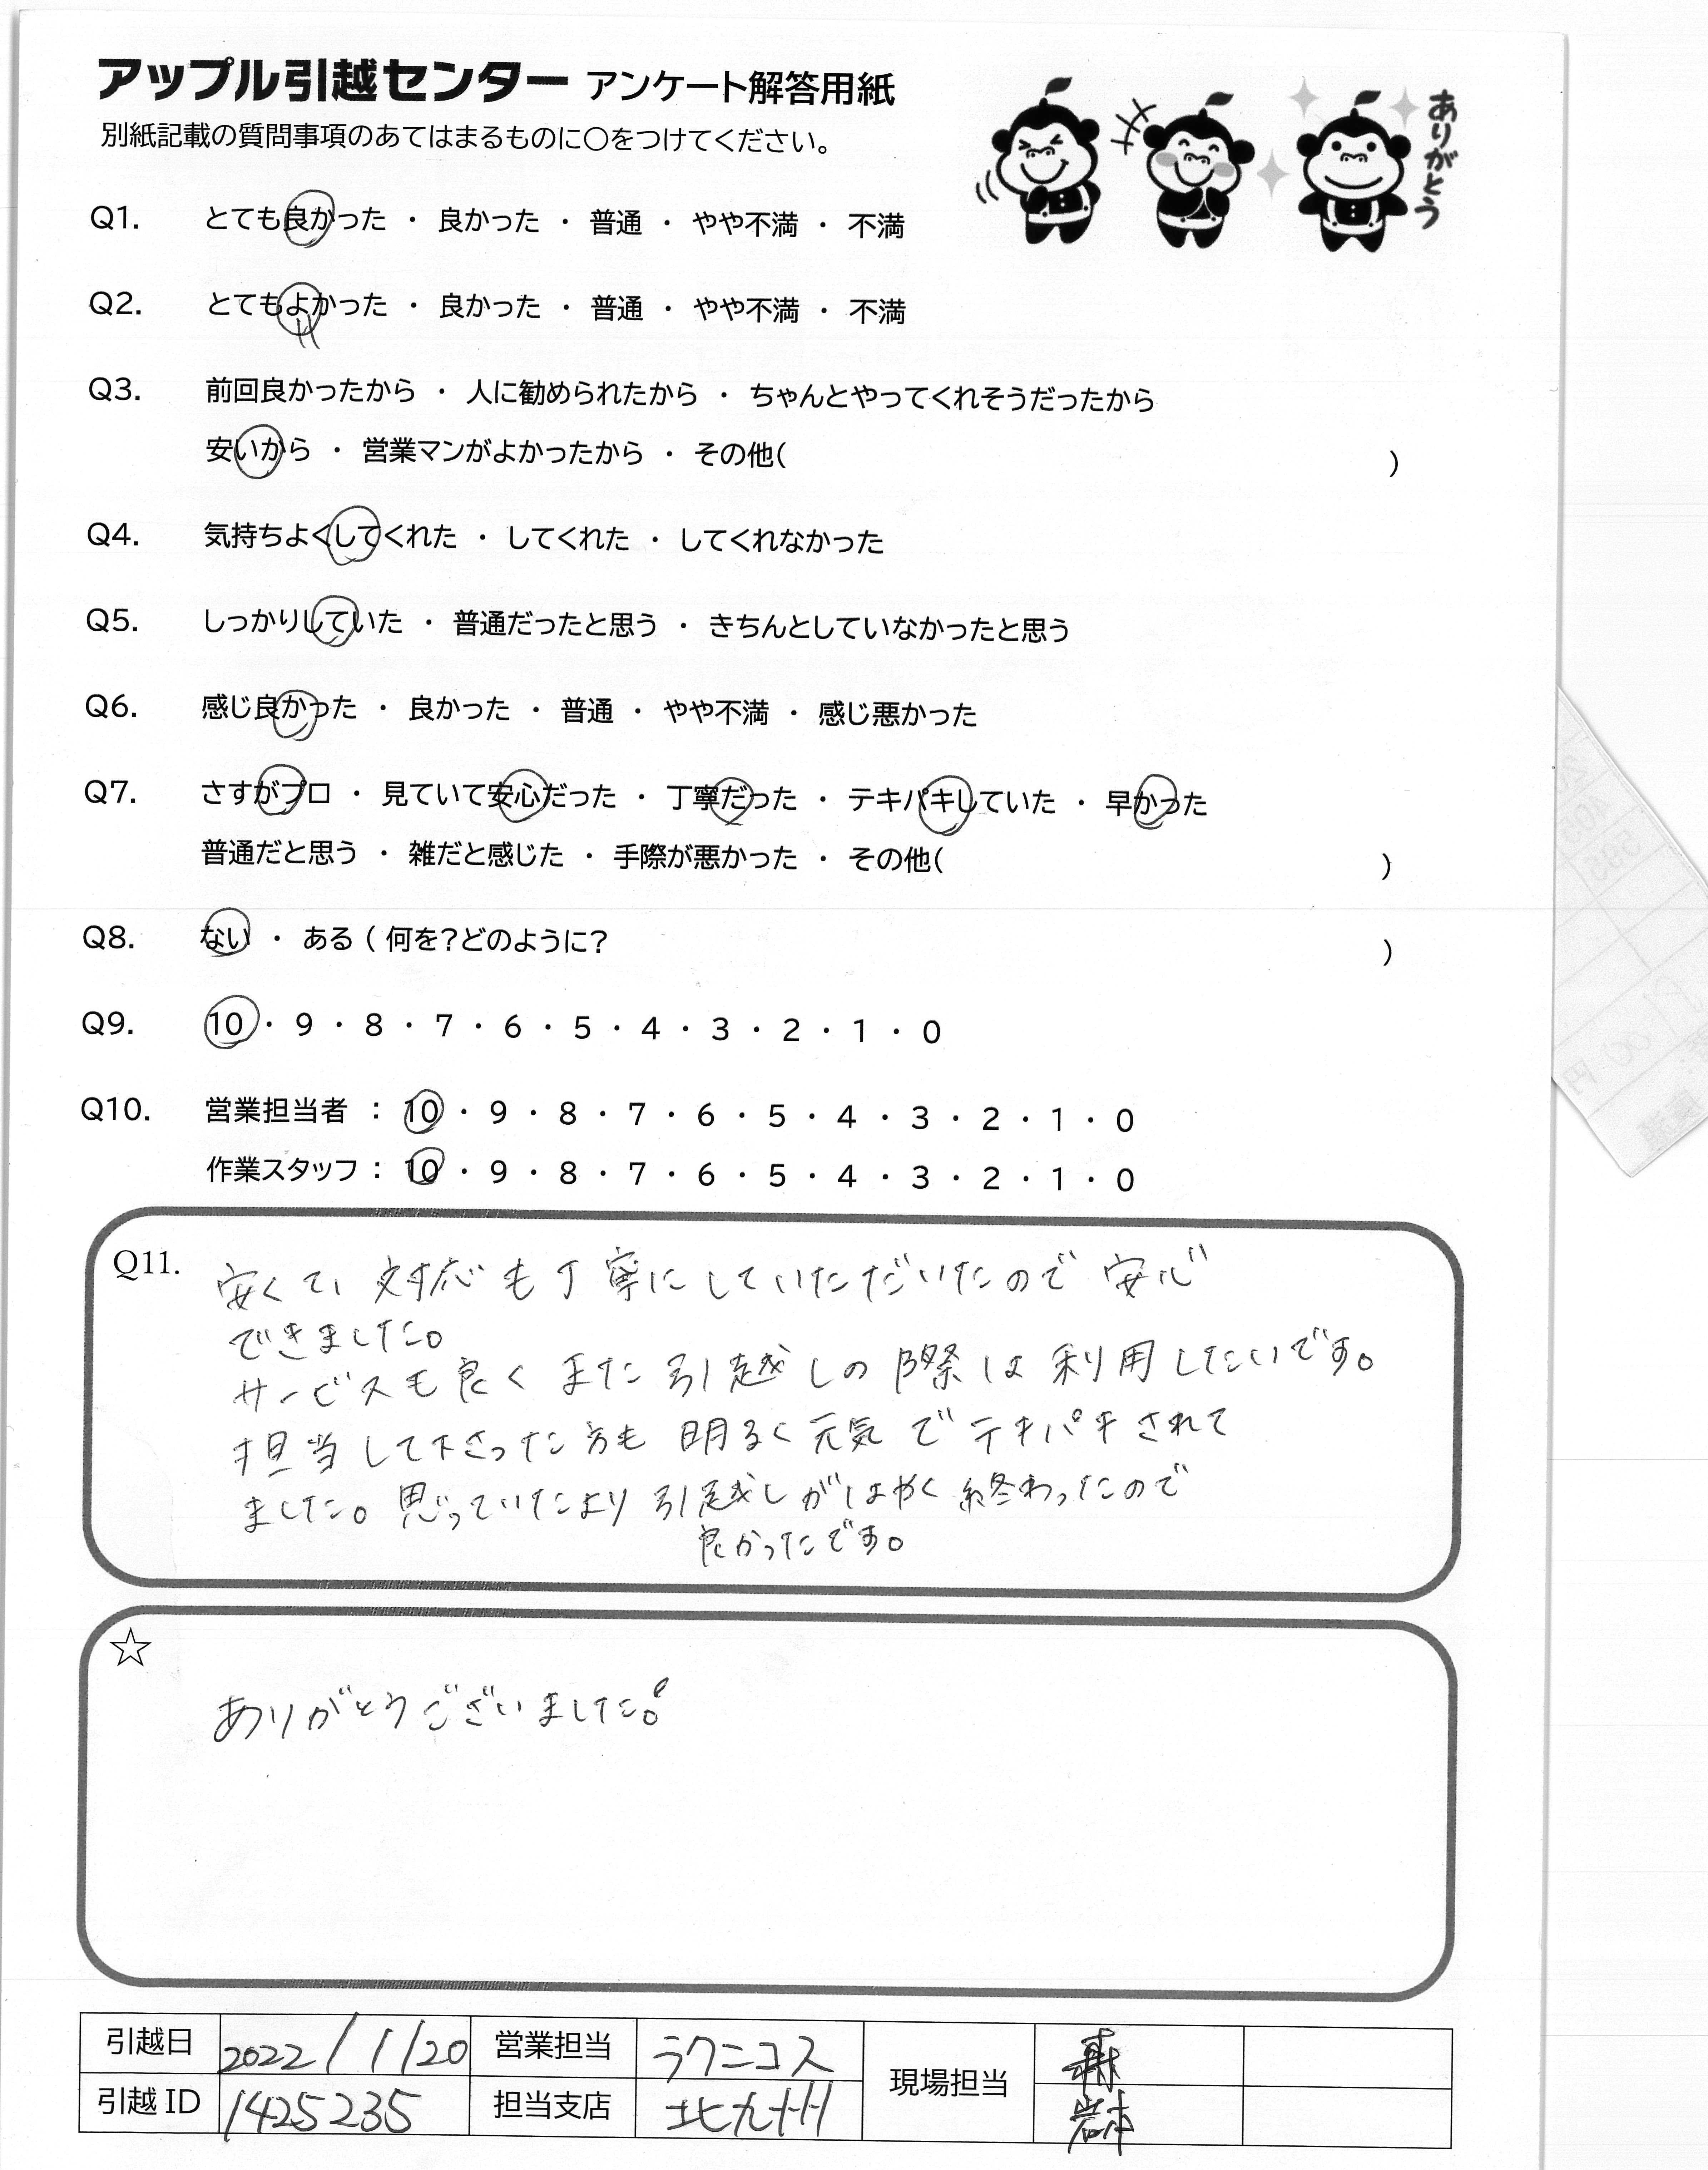 アップル引越センター アンケート解答用紙
別紙記載の質問事項のあてはまるものに〇をつけてください。
ありがとう
Q1. とても良かった ・ 良かった ・ 普通 ・ やや不満 ・ 不満
Q2. とてもよかった ・ 良かった ・ 普通 ・ やや不満 ・ 不満
Q3. 前回良かったから ・ 人に勧められたから ・ ちゃんとやってくれそうだったから
安いから ・ 営業マンがよかったから ・ その他( )
Q4. 気持ちよくしてくれた ・ してくれた ・ してくれなかった
Q5. しっかりしていた ・ 普通だったと思う ・ きちんとしていなかったと思う
Q6. 感じ良かった ・ 良かった ・ 普通 ・ やや不満 ・ 感じ悪かった
Q7. さすがプロ ・ 見ていて安心だった ・ 丁寧だった ・ テキパキしていた ・ 早かった
普通だと思う ・ 雑だと感じた ・ 手際が悪かった ・ その他( )
Q8. ない ・ ある ( 何を?どのように? )
Q9. 10 ・ 9 ・ 8 ・ 7 ・ 6 ・ 5 ・ 4 ・ 3 ・ 2 ・ 1 ・ 0
Q10. 営業担当者 : 10 ・ 9 ・ 8 ・ 7 ・ 6 ・ 5 ・ 4 ・ 3 ・ 2 ・ 1 ・ 0
作業スタッフ : 10 ・ 9 ・ 8 ・ 7 ・ 6 ・ 5 ・ 4 ・ 3 ・ 2 ・ 1 ・ 0
Q11. 安くてい 対応も丁寧にしていただいたので安心
できました。
サービスも良くまた引越しの際は利用したいです。
担当して下さった方も明るく元気でテキパキされて
ました。思っていたより引越しがはやく終わったので
良かったです。
☆
ありがとうございました。
引越日 2022/1/20 営業担当 ラクニコス 現場担当 森
引越ID 1425235 担当支店 北九州 岩本